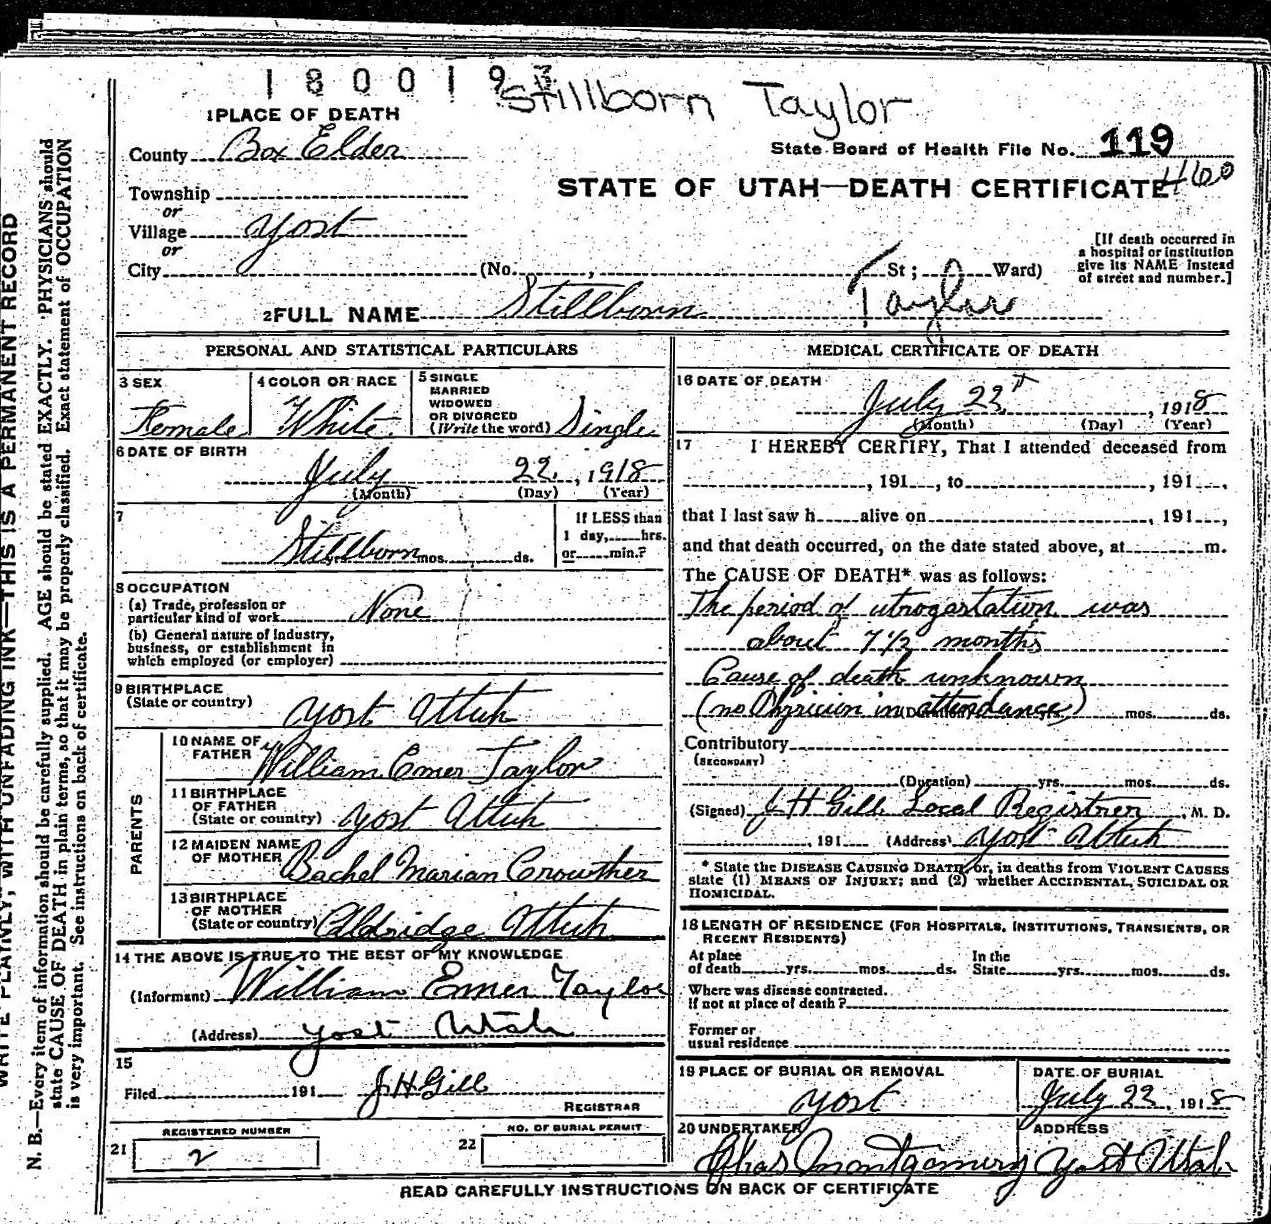 1800193
Stillborn Taylor
1 PLACE OF DEATH
County Box Elder
State Board of Health File No. 119
460
Township
or
Village Yost
or
City (No. , St ; Ward)
STATE OF UTAH—DEATH CERTIFICATE
[If death occurred in
a hospital or institution
give its NAME instead
of street and number.]
2 FULL NAME Stillborn Taylor
PERSONAL AND STATISTICAL PARTICULARS
3 SEX
Female
4 COLOR OR RACE
White
5 SINGLE
MARRIED
WIDOWED
OR DIVORCED
(Write the word) Single
6 DATE OF BIRTH
July 22, 1918
(Month) (Day) (Year)
7
Stillborn yrs. mos. ds.
If LESS than
1 day, hrs.
or min.?
8 OCCUPATION
(a) Trade, profession or
particular kind of work None
(b) General nature of industry,
business, or establishment in
which employed (or employer)
9 BIRTHPLACE
(State or country) Yost Utah
PARENTS
10 NAME OF
FATHER William Emer Taylor
11 BIRTHPLACE
OF FATHER
(State or country) Yost Utah
12 MAIDEN NAME
OF MOTHER Rachel Marian Crowther
13 BIRTHPLACE
OF MOTHER
(State or country) Aldridge Utah
14 THE ABOVE IS TRUE TO THE BEST OF MY KNOWLEDGE
(Informant) William Emer Taylor
(Address) Yost Utah
15
Filed 191 J H Gill
REGISTRAR
21 REGISTERED NUMBER
2
22 NO. OF BURIAL PERMIT
MEDICAL CERTIFICATE OF DEATH
16 DATE OF DEATH
July 22, 1918
(Month) (Day) (Year)
17 I HEREBY CERTIFY, That I attended deceased from
, 191 , to , 191 ,
that I last saw h alive on , 191 ,
and that death occurred, on the date stated above, at m.
The CAUSE OF DEATH* was as follows:
The period of utrogastation was
about 7 1/2 months
Cause of death unknown
(no Physician in attendance) mos. ds.
Contributory
(SECONDARY)
(Duration) yrs. mos. ds.
(Signed) J H Gill Local Registrer, M. D.
, 191 (Address) Yost Utah
* State the DISEASE CAUSING DEATH, or, in deaths from VIOLENT CAUSES
state (1) MEANS OF INJURY; and (2) whether ACCIDENTAL, SUICIDAL OR
HOMICIDAL.
18 LENGTH OF RESIDENCE (FOR HOSPITALS, INSTITUTIONS, TRANSIENTS, OR
RECENT RESIDENTS)
At place
of death yrs. mos. ds.
In the
State yrs. mos. ds.
Where was disease contracted.
If not at place of death ?
Former or
usual residence
19 PLACE OF BURIAL OR REMOVAL
Yost
DATE OF BURIAL
July 22, 1918
20 UNDERTAKER
Chas Montgomery
ADDRESS
Yost Utah
READ CAREFULLY INSTRUCTIONS ON BACK OF CERTIFICATE
WRITE PLAINLY, WITH UNFADING INK—THIS IS A PERMANENT RECORD
N. B.—Every item of information should be carefully supplied. AGE should be stated EXACTLY. PHYSICIANS should
state CAUSE OF DEATH in plain terms, so that it may be properly classified. Exact statement of OCCUPATION
is very important. See instructions on back of certificate.